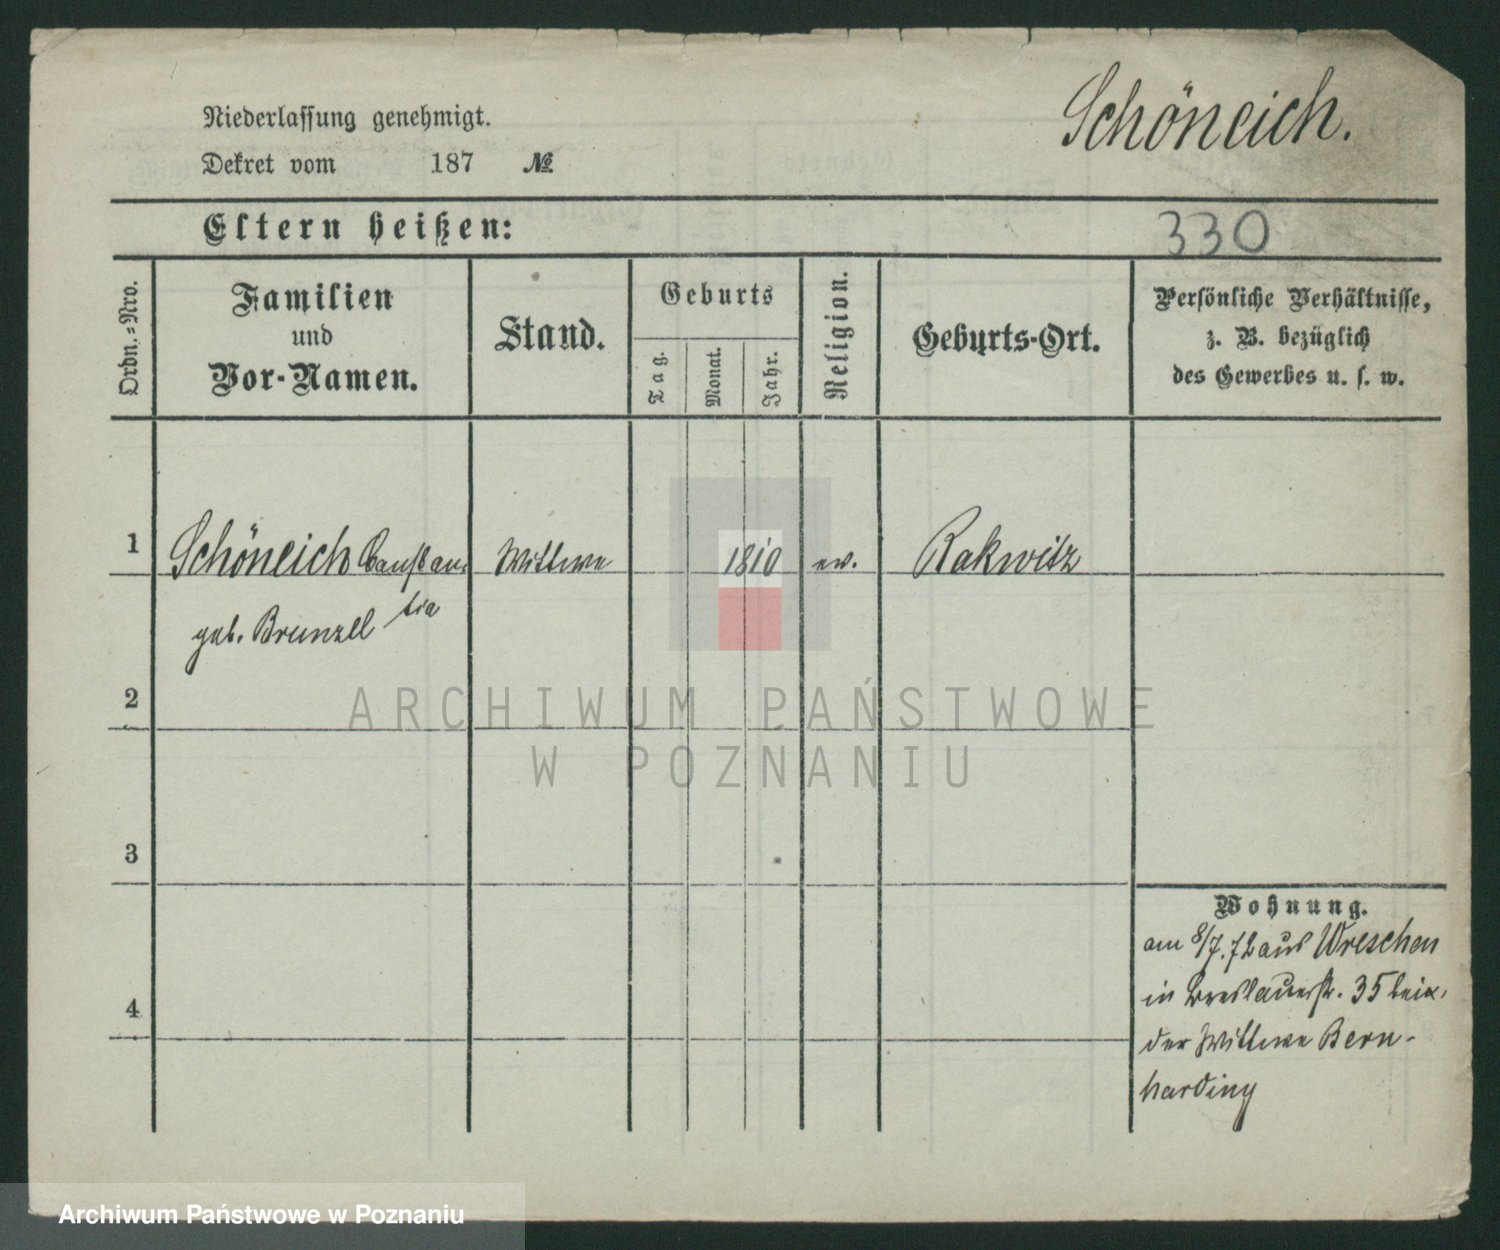 Schöneich.
Niederlassung genehmigt.
Dekret vom 187 №
Eltern heißen:
330
Ordn.-Nro.
Familien
und
Vor-Namen.
Stand.
Geburts
Tag.
Monat.
Jahr.
Religion.
Geburts-Ort.
Persönliche Verhältnisse,
z. B. bezüglich
des Gewerbes u. s. w.
1 Schöneich Constan Wittwe 1810 ev. Rakwitz
tia
geb. Brunzell
2
3
4
Wohnung.
am 8/7.72 aus Wreschen
in Breslauerstr. 35
der Wittwe Bern-
harding
ARCHIWUM PAŃSTWOWE
W POZNANIU
Archiwum Państwowe w Poznaniu